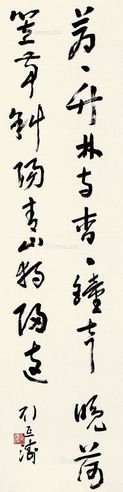 蒼々竹林寺杳々鐘聲晚荷
笠帶斜陽青山獨歸遠